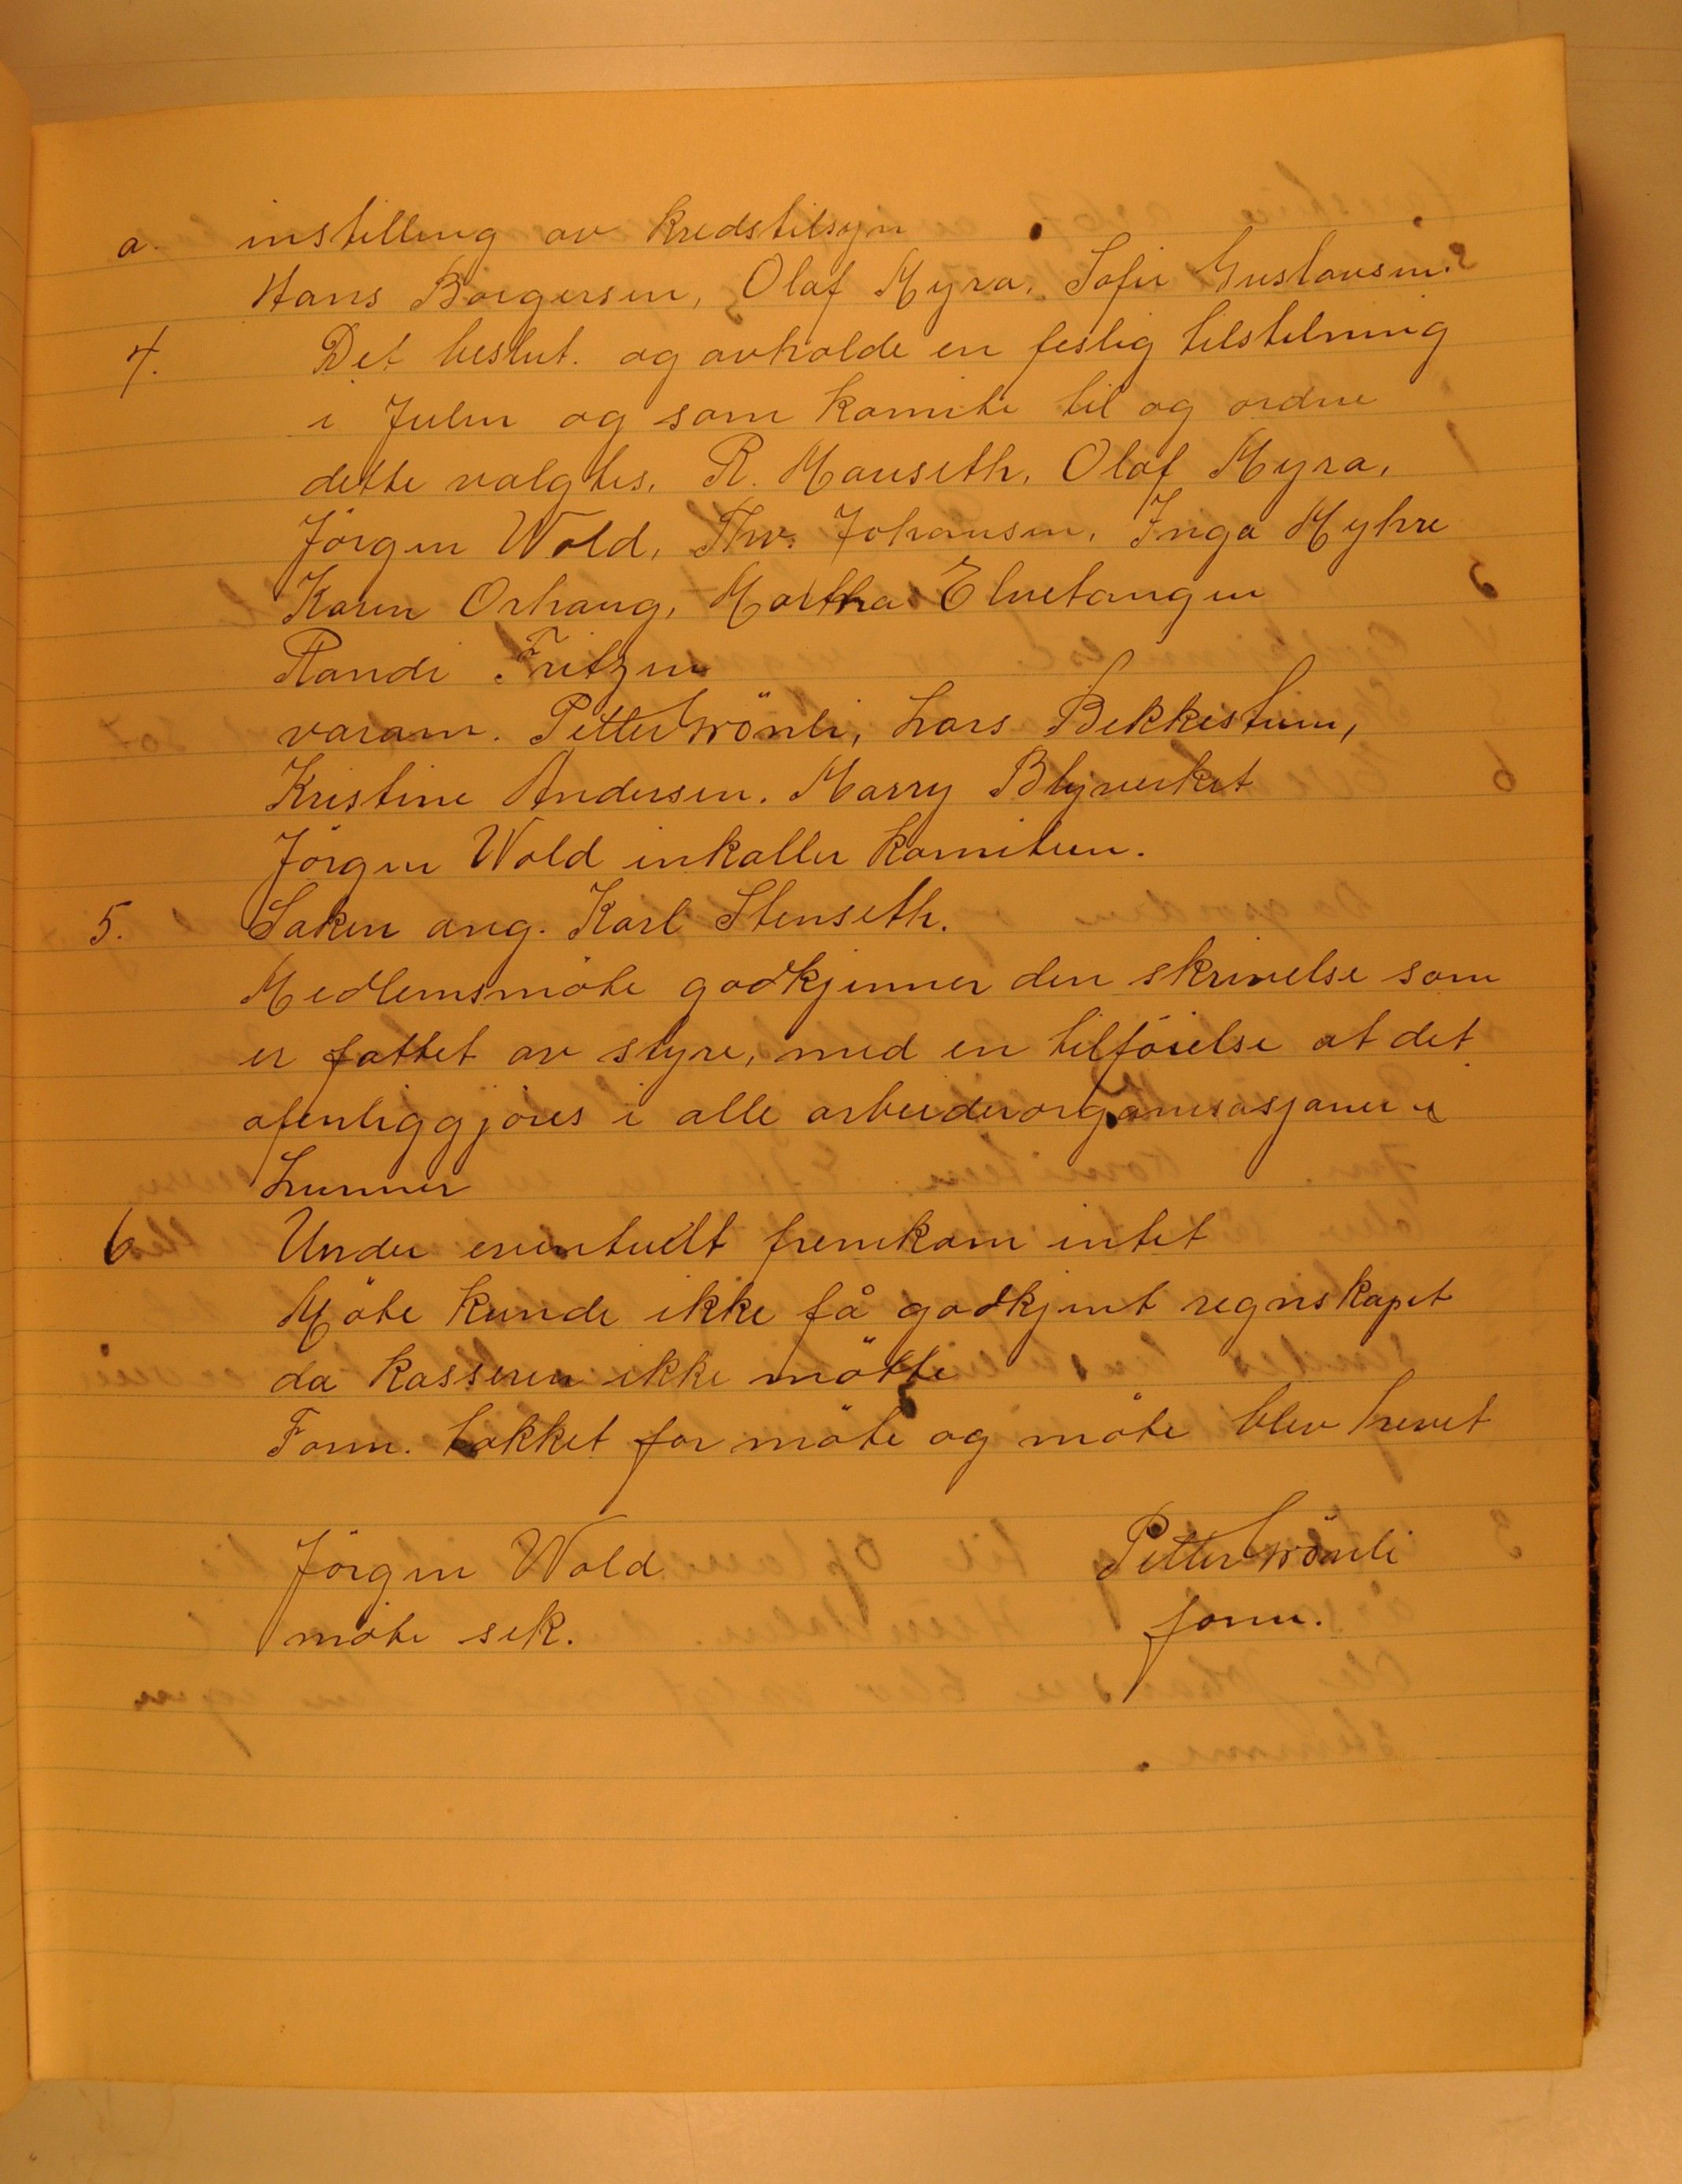 a. instilling av kredstilsyn
Hans Börgersen, Olaf Myra, Sofie Gustavsen.
4. Det beslut. og avholde en festlig tilstelning
i Julen og som komite til og ordne
dette valgtes. R. Hauseth, Olaf Myra,
Jörgen Wold, Thv. Johansen, Inga Myhre
Karen Orhaug, Martha Elvetangen
Randi Fritzen
varam. Petter Grönli, Lars Bekkestuen,
Kristine Andersen. Harry Blyverket
Jörgen Wold inkaller komiteen.
5. Saken ang. Karl Stenseth.
Medlemsmöte godkjenner den skrivelse som
er fattet av styre, med en tilföielse at det
ofenliggjöres i alle arbeiderorganisasjoner i
Lunner
6. Under eventuelt fremkom intet
Möte kunde ikke få godkjent regnskapet
da kasseren ikke mötte
Form. takket for möte og möte blev hevet
Jörgen Wold Petter Grönli
möte sek. form.